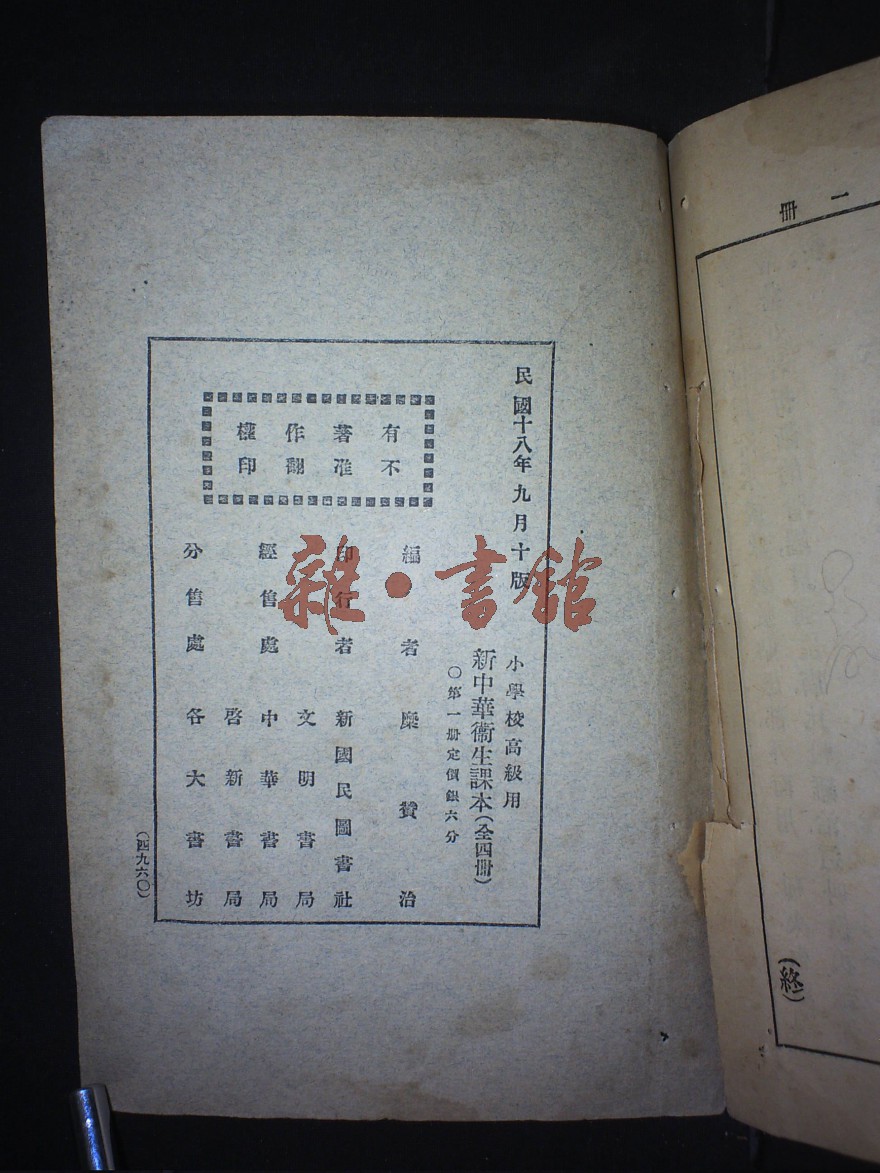 一冊
(終)
民國十八年九月十版
小學校高級用
新中華衞生課本(全四冊)
〇第一册定價銀六分
有不
著准
作翻
權印
編者 糜贊治
印行者 新國民圖書社
文明書局
經售處 中華書局
啓新書局
分售處 各大書坊
(四九六〇)
雜·書館